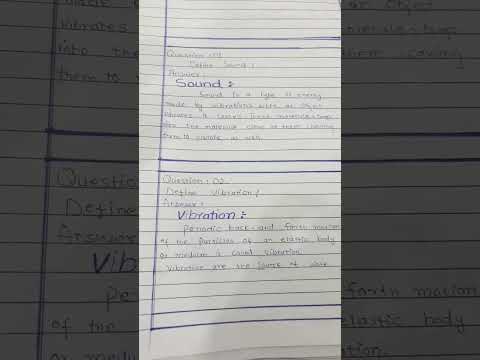 Question : 01
Define Sound :
Answer :
Sound :
Sound is a type of energy
made by vibrations. when an object
vibrates it causes
into the molecules close to them causing
them to vibrate as well.
Question : 02
Define Vibration /
Answer :
Vibration :
Periodic back and forth motion
of the particles of an elastic body
or medium is called vibration.
Vibration are the source of